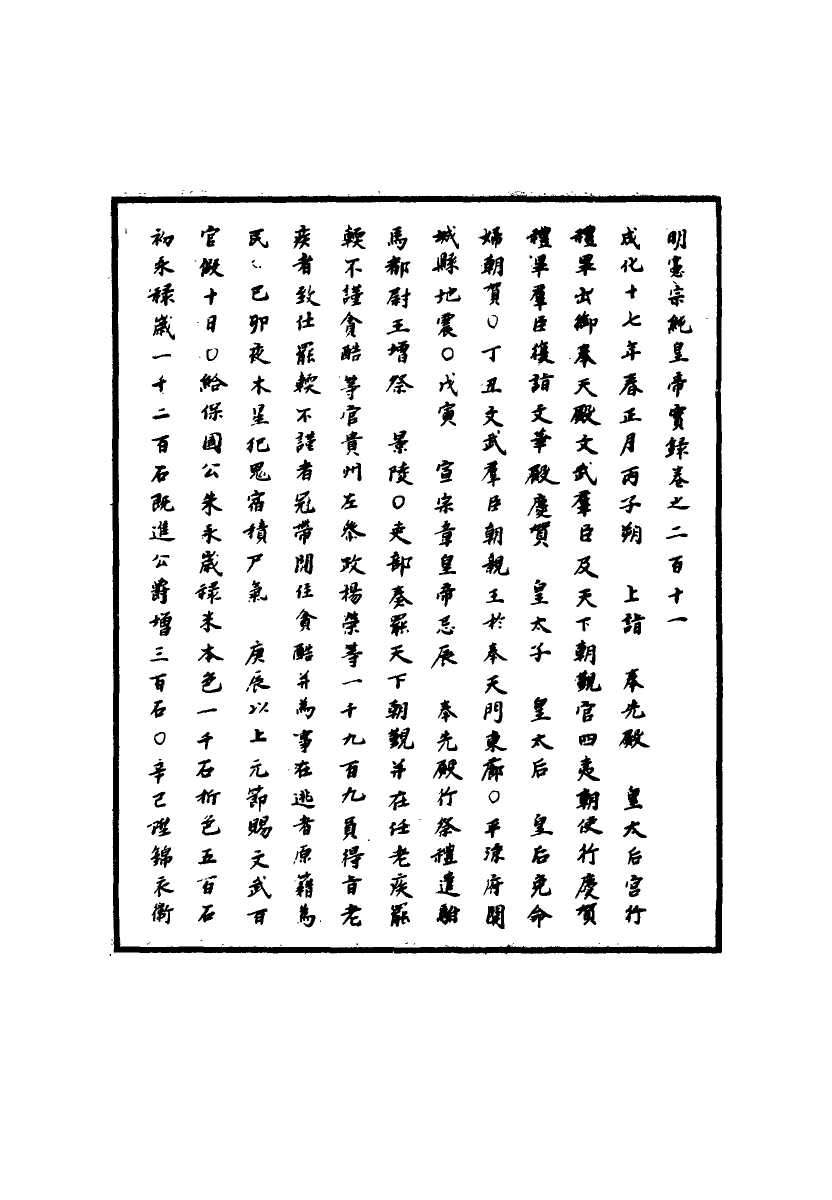 明憲宗純皇帝實錄卷之二百十一
成化十七年春正月丙子朔　上詣　奉先殿　皇太后宮行
禮畢出御奉天殿文武羣臣及天下朝覲官四夷朝使行慶賀
禮畢羣臣復詣文華殿慶賀　皇太子　皇太后　皇后免命
婦朝賀○丁丑文武羣臣朝親王於奉天門東廊○平涼府開
城縣地震○戊寅　宣宗章皇帝忌辰　奉先殿行祭禮遣駙
馬都尉王增祭　景陵○吏部奏罷天下朝覲并在任老疾罷
輭不謹貪酷等官貴州左參政楊榮等一千九百九員得旨老
疾者致仕罷輭不謹者冠帶閒住貪酷并為事在逃者原籍為
民○己卯夜木星犯鬼宿積尸氣　庚辰以上元節賜文武百
官假十日○給保國公朱永歲祿米本色一千石折色五百石
初永祿歲一千二百石既進公爵增三百石○辛巳陞錦衣衛